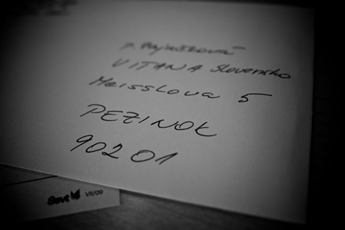 p.
VITANA Slovensko
Meisslova 5
PEZINOK
902 01